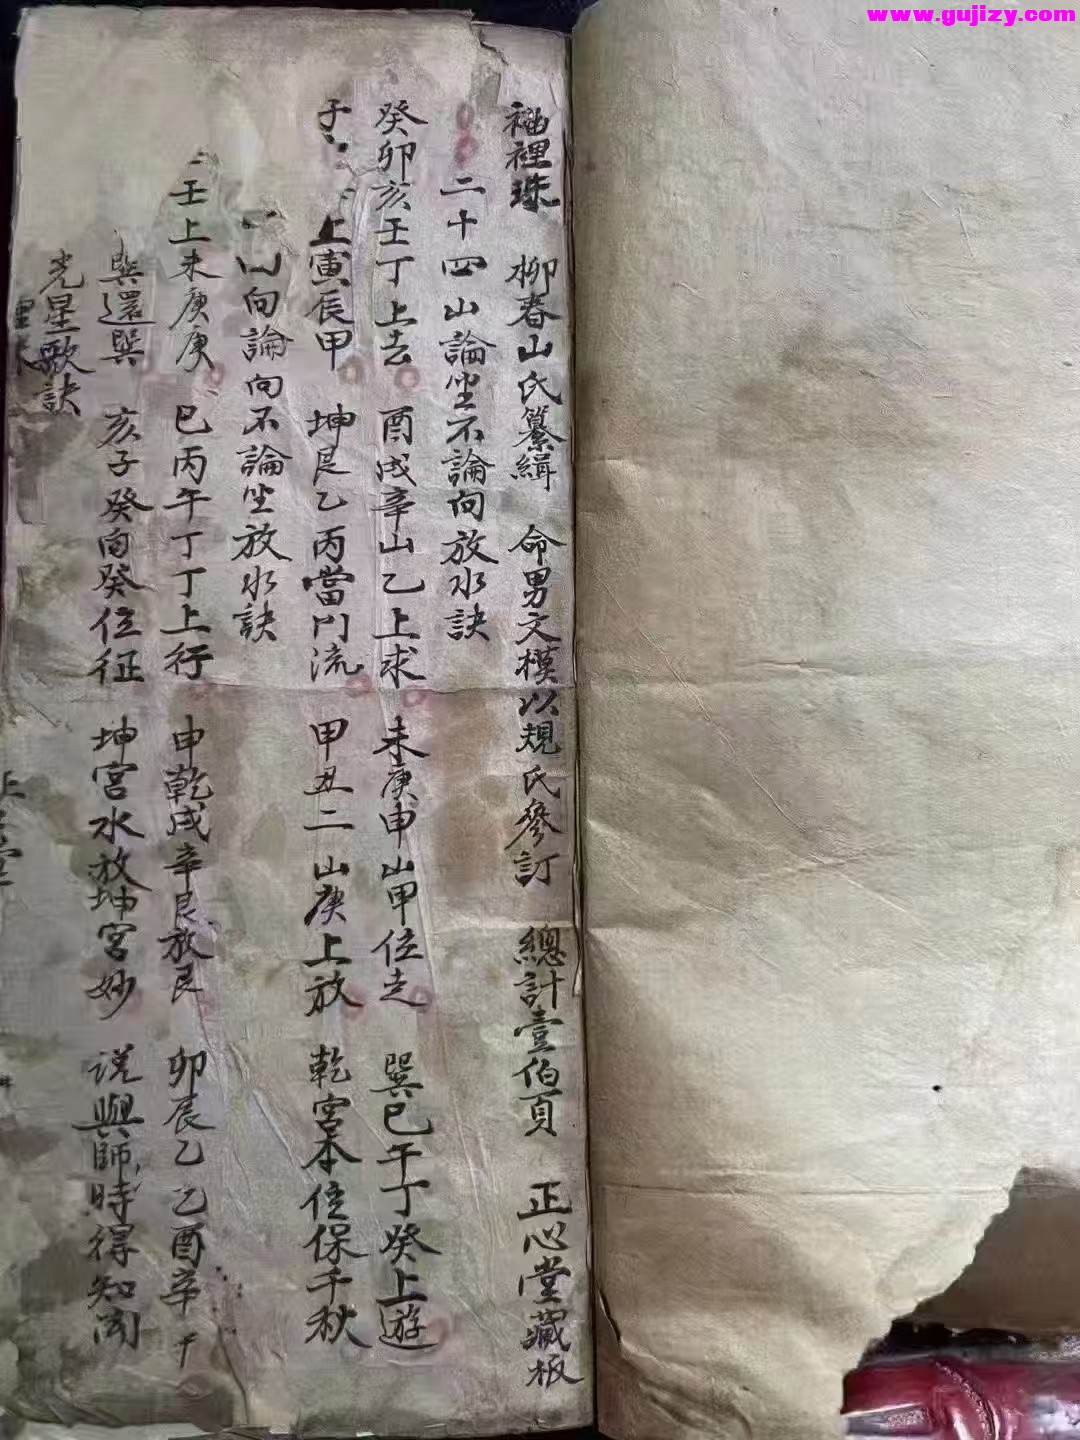 www.gujizy.com
袖裡珠 柳春山氏纂緝 命男文模以規氏參訂 總計壹伯頁 正心堂藏板
二十四山論坐不論向放水訣
癸卯亥壬丁上去 酉戌辛山乙上求 未庚申山甲位走 巽巳午丁癸上遊
子 上寅辰甲 坤艮乙丙當門流 甲丑二山庚上放 乾宮本位保千秋
山向論向不論坐放水訣
壬上未庚庚 巳丙午丁丁上行 申乾戌辛艮放艮 卯辰乙乙酉辛
巽還巽 亥子癸向癸位征 坤宮水放坤宮妙 說與師時得知聞
光星歌訣